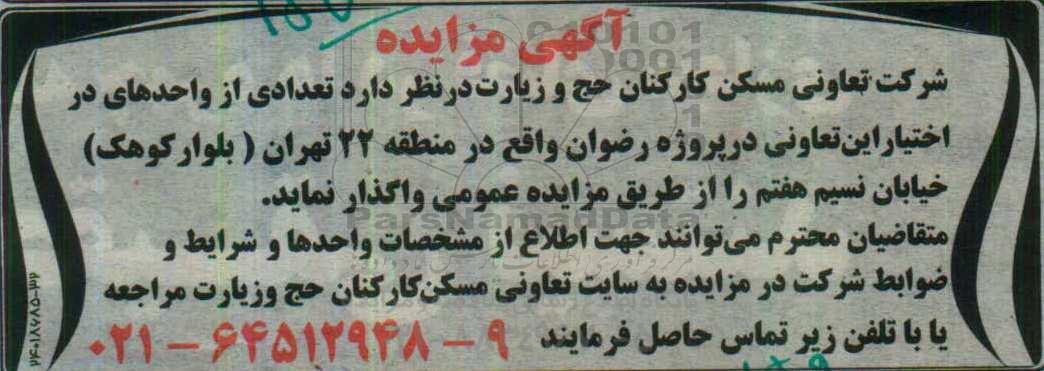 آگهی مزایده
شرکت تعاونی مسکن کارکنان حج و زیارت درنظر دارد تعدادی از واحدهای در
اختیار این تعاونی درپروژه رضوان واقع در منطقه ۲۲ تهران ( بلوار کوهک)
خیابان نسیم هفتم را از طریق مزایده عمومی واگذار نماید.
متقاضیان محترم می‌توانند جهت اطلاع از مشخصات واحدها و شرایط و
ضوابط شرکت در مزایده به سایت تعاونی مسکن کارکنان حج وزیارت مراجعه
یا با تلفن زیر تماس حاصل فرمایند ۹ – ۶۴۵۱۲۹۴۸ – ۰۲۱
ParsNamadData